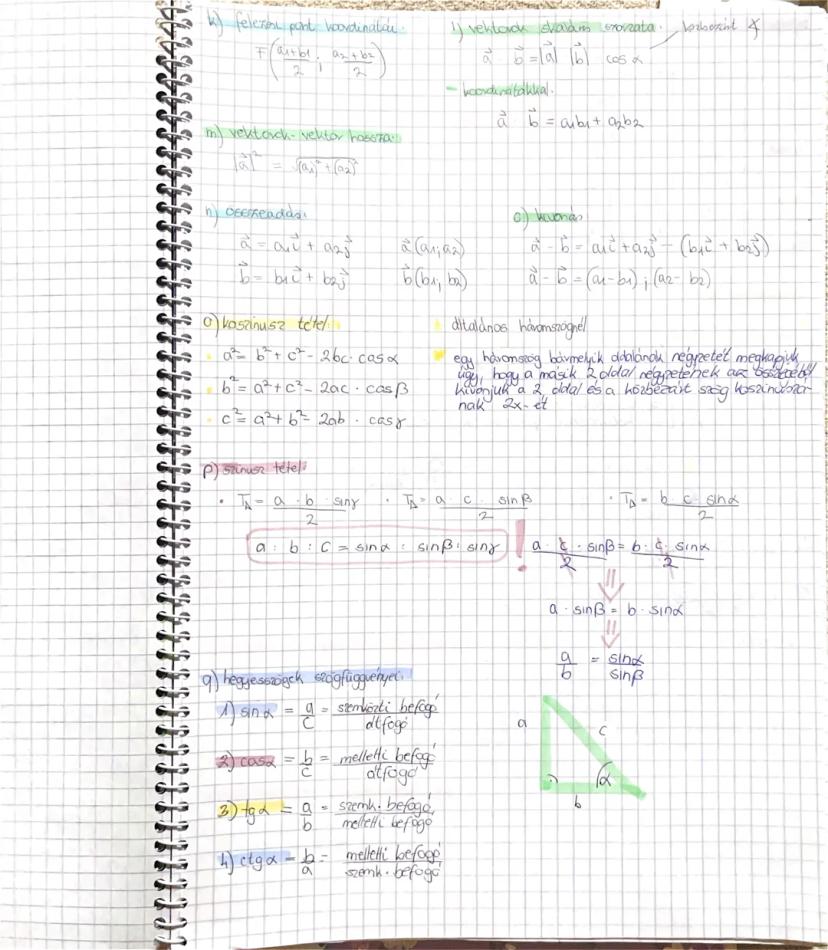 k) felezési pont koordinátái
F(a1+b1/2 ; a2+b2/2)
l) vektorok skaláris szorzata. közbezárt ∢
a⃗ · b⃗ = |a⃗| |b⃗| cos α
- koordinátákkal.
a⃗ b⃗ = a1b1 + a2b2
m) vektorok - vektor hossza:
|a⃗|² = √(a1)² + (a2)²
n) összeadás:
a⃗ = a1i⃗ + a2j⃗ a⃗(a1; a2)
b⃗ = b1i⃗ + b2j⃗ b⃗(b1; b2)
o) kivonás
a⃗ - b⃗ = a1i⃗ + a2j⃗ - (b1i⃗ + b2j⃗)
a⃗ - b⃗ = (a1-b1) ; (a2-b2)
o) koszinusz tétel: általános háromszögnél
a² = b² + c² - 2bc · cos α
b² = a² + c² - 2ac · cos β
c² = a² + b² - 2ab · cos γ
egy háromszög bármelyik oldalának négyzetét megkapjuk
úgy, hogy a másik 2 oldal négyzetének az összegéből
kivonjuk a 2 oldal és a közbezárt szög koszinuszá-
nak 2x-ét
p) szinusz tétel:
· T△ = a · b · sin γ / 2 · T△ = a · c · sin β / 2 · T△ = b · c · sin α / 2
a : b : c = sin α : sin β : sin γ ! a · c · sin β / 2 = b · c · sin α / 2
a · sin β = b · sin α
a/b = sin α / sin β
q) hegyesszögek szögfüggvényei:
1) sin α = a/c = szemközti befogó / átfogó
2) cos α = b/c = melletti befogó / átfogó
3) tg α = a/b = szemk. befogó / melletti befogó
4) ctg α = b/a = melletti befogó / szemk. befogó
a c
α
b